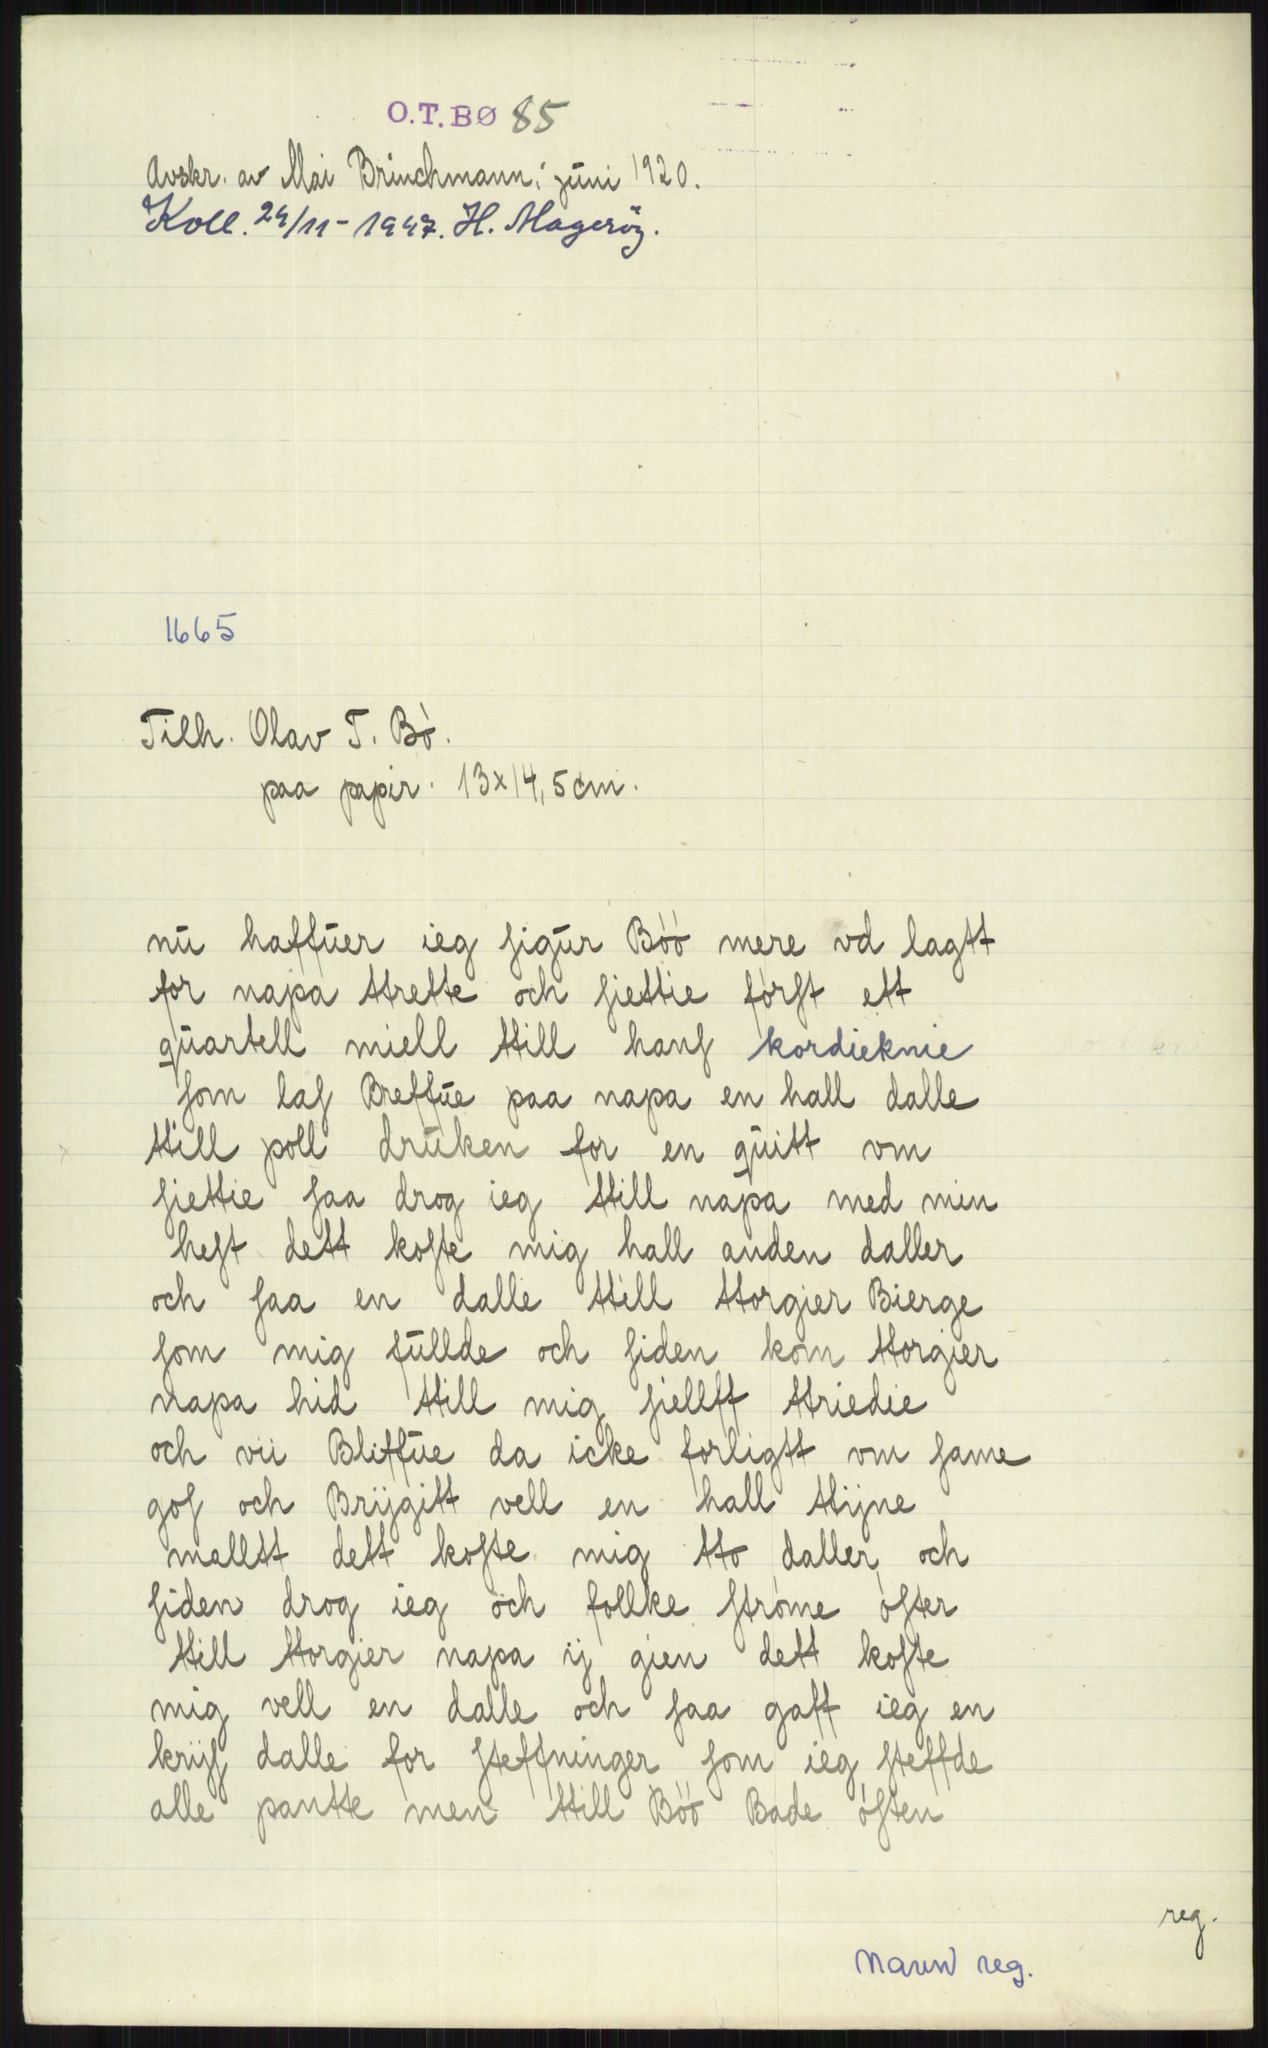 O.T.BØ 85
Avskr. av Mai Brinchmann, juni 1920.
Koll. 24/11-1947. H. Magerøy.
1665
Tilh. Olav T. Bø.
paa papir. 13x14,5cm.
nu haffuer ieg sigur Böö mere vd lagtt
for napa ttrette och siettie først ett
quartell miell ttill hans kordieknie
som las Breffue paa napa en hall dalle
ttill poll druken for en quitt om
siettie saa drog ieg ttill napa med min
hest dett koste mig hall anden daller
och saa en dalle ttill ttorgier Bierge
som mig fullde och siden kom ttorgier
napa hid ttill mig siellff ttriedie
och vii Bliffue da icke forligtt om same
gos och Brijgitt vell en hall ttijne
malltt dett koste mig tto daller och
siden drog ieg och follke strøme øster
ttill ttorgier napa ij gien dett koste
mig vell en dalle och saa gaff ieg en
krijs dalle for steffninger som ieg steffde
alle pantte men ttill Böö Bade østen
reg.
Navn reg.